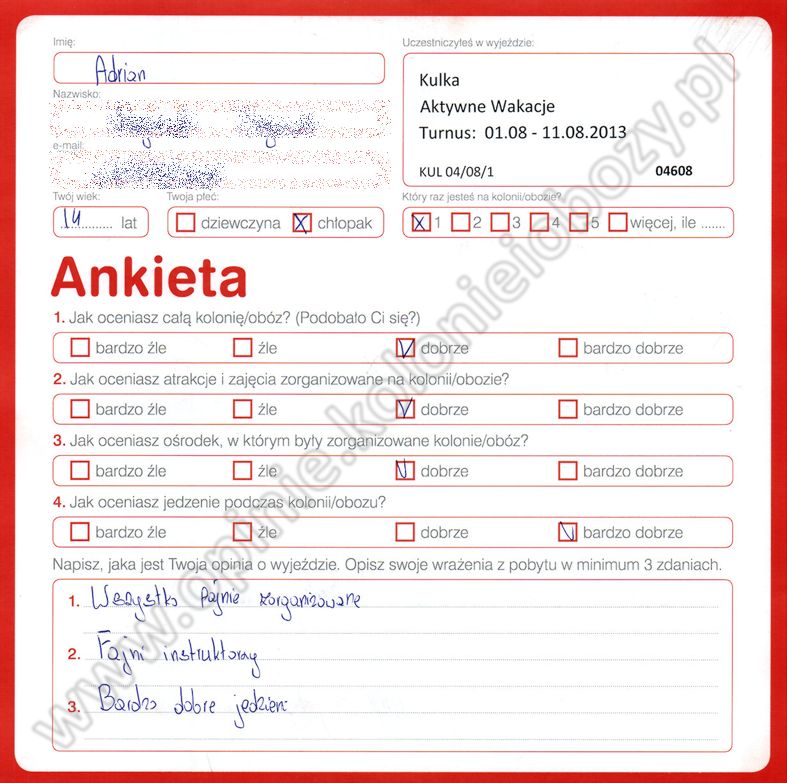 Imię:
Uczestniczyłeś w wyjeździe:
Adrian
Kulka
Aktywne Wakacje
Turnus: 01.08 - 11.08.2013
KUL 04/08/1 04608
Nazwisko:
e-mail:
Twój wiek: Twoja płeć: Który raz jesteś na kolonii/obozie?
14 lat dziewczyna chłopak 1 2 3 4 5 więcej, ile .......
Ankieta
1. Jak oceniasz całą kolonię/obóz? (Podobało Ci się?)
bardzo źle źle dobrze bardzo dobrze
2. Jak oceniasz atrakcje i zajęcia zorganizowane na kolonii/obozie?
bardzo źle źle dobrze bardzo dobrze
3. Jak oceniasz ośrodek, w którym były zorganizowane kolonie/obóz?
bardzo źle źle dobrze bardzo dobrze
4. Jak oceniasz jedzenie podczas kolonii/obozu?
bardzo źle źle dobrze bardzo dobrze
Napisz, jaka jest Twoja opinia o wyjeździe. Opisz swoje wrażenia z pobytu w minimum 3 zdaniach.
1. Wszystko fajnie zorganizowane
2. Fajni instruktorzy
3. Bardzo dobre
www.opinie.kolonieiobozy.pl